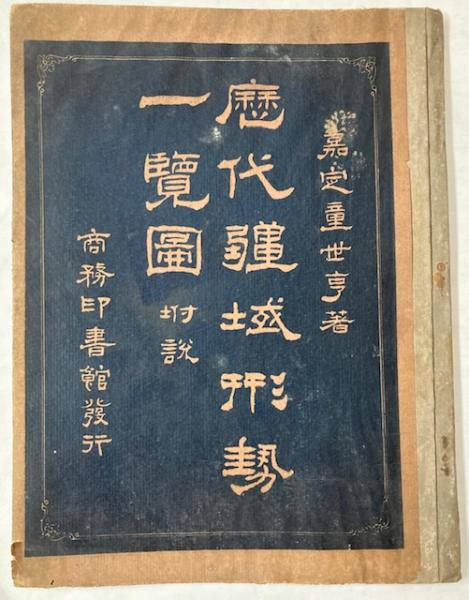 嘉定童世亨著
歷代疆域形勢
一覽圖坿說
商務印書館發行